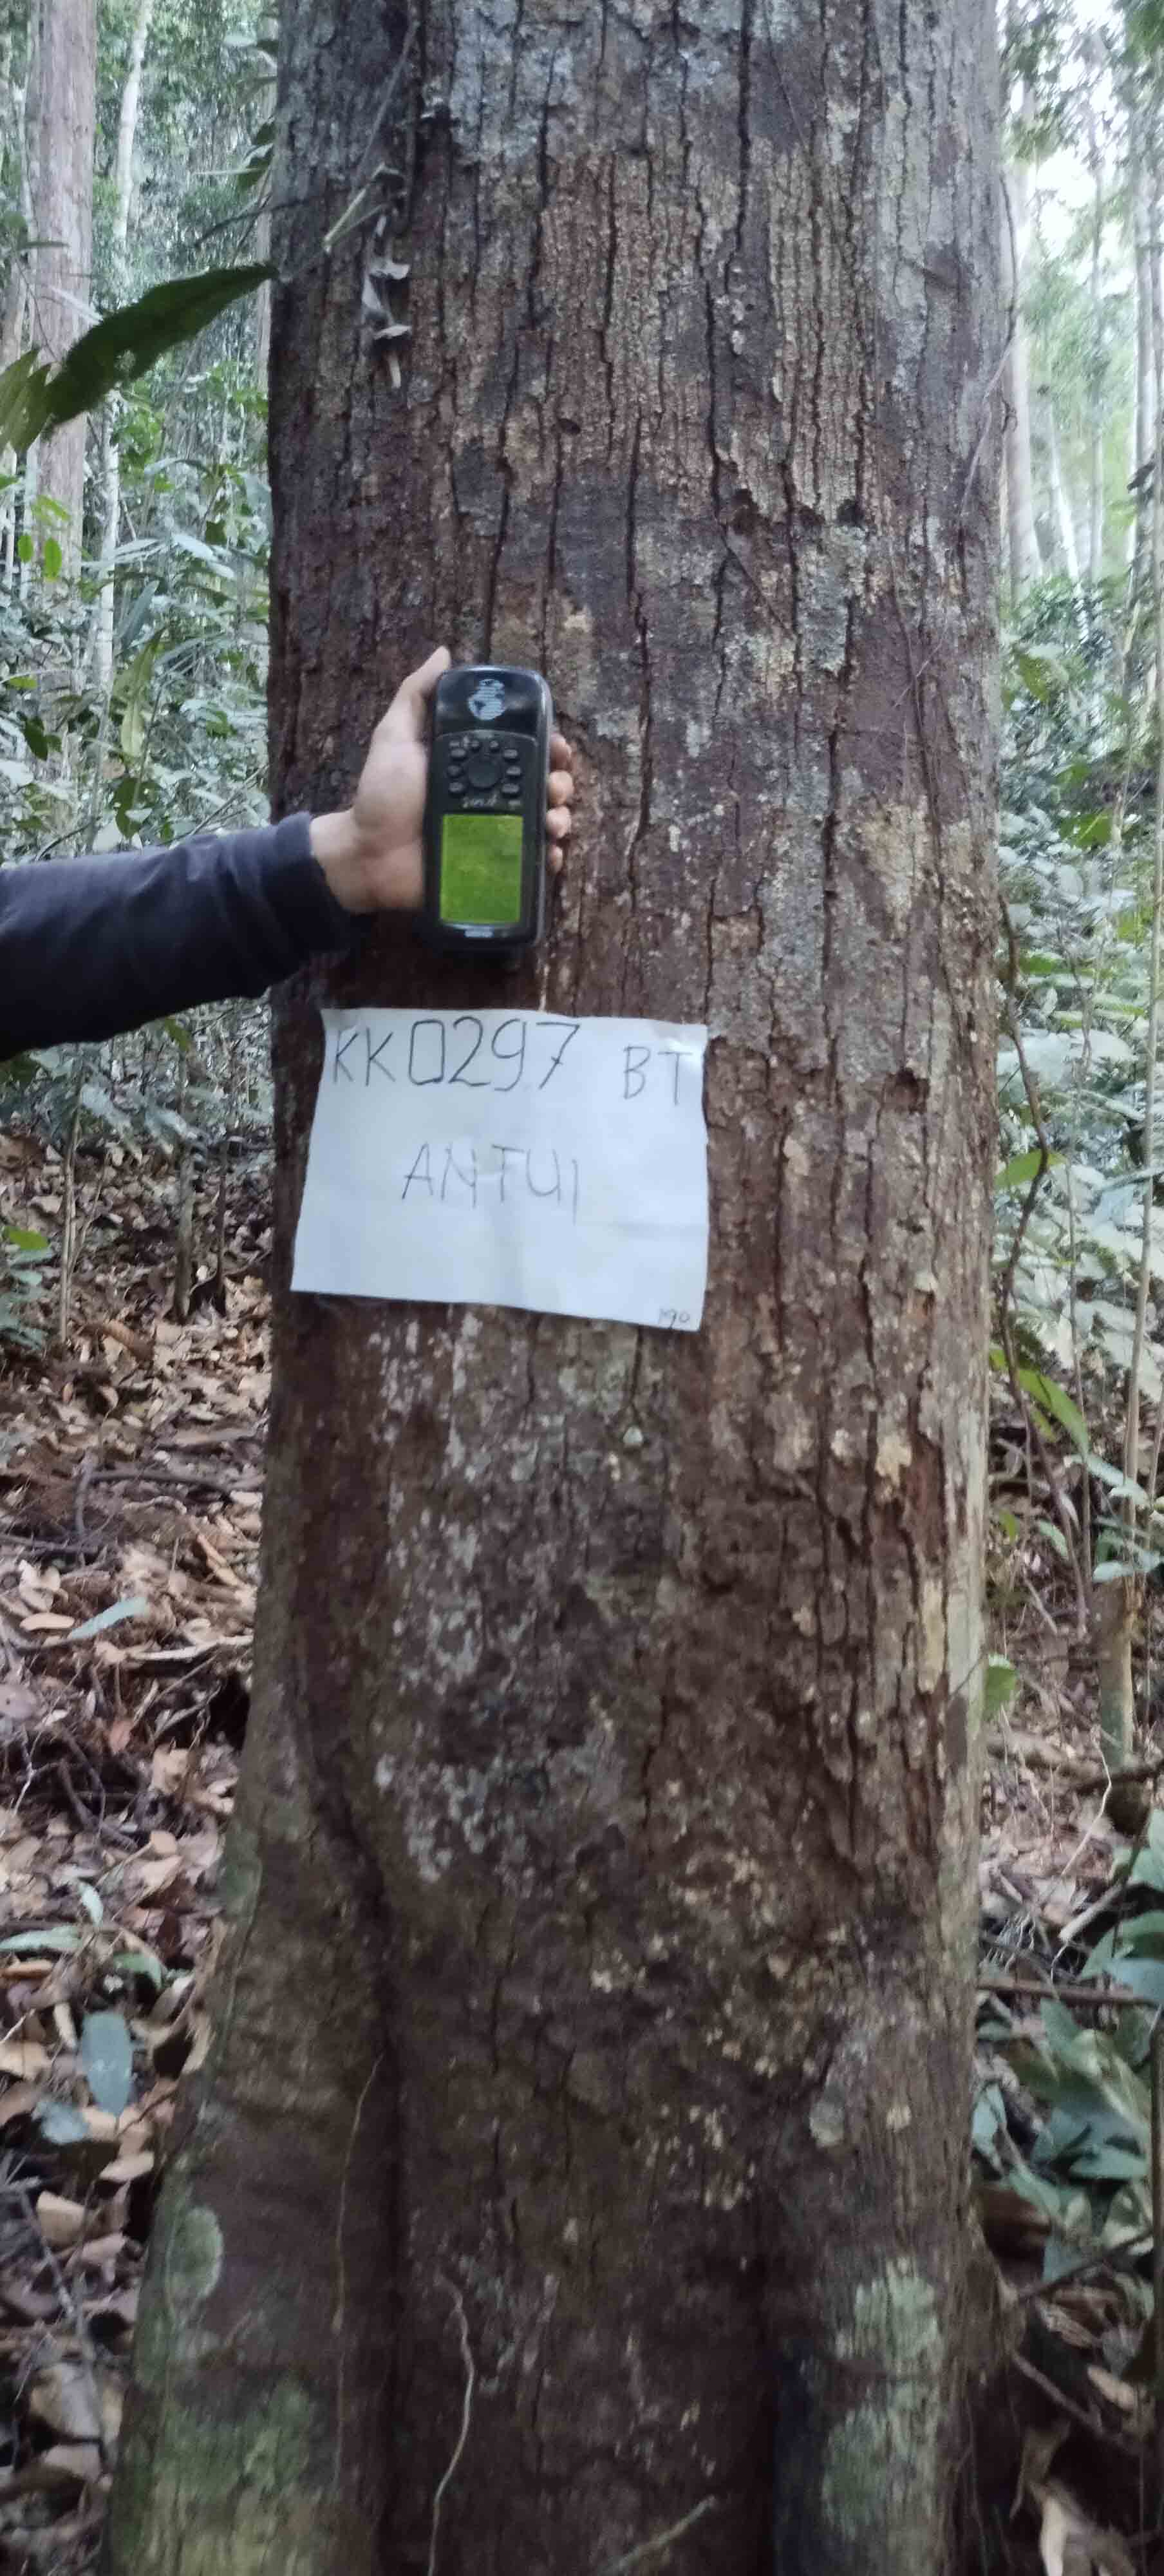 KK0297 BT
ANTUI
190